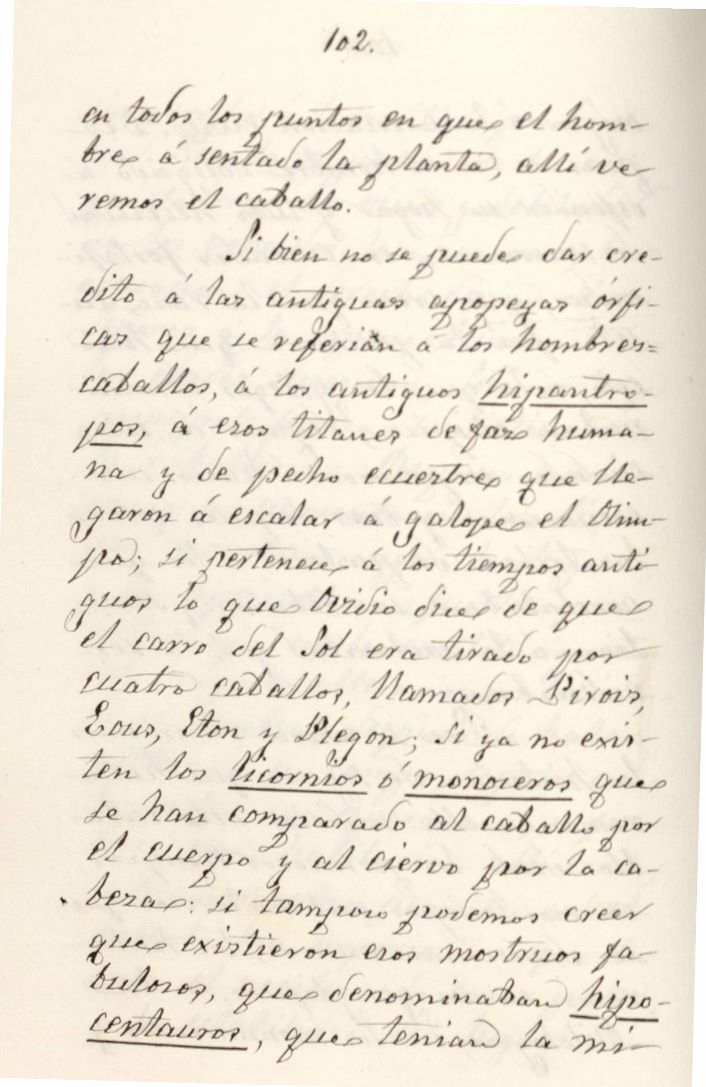 102.
en todos los puntos en que el hom-
bre á sentado la planta, allí ve-
remos el caballo.
Si bien no se puede dar cre-
dito á las antiguas apopeyas órfi-
cas que se referian á los hombres=
caballos, á los antiguos hipantro-
pos, á esos titanes de faz huma-
na y de pecho ecuestre que lle-
garon á escalar á galope el Olim-
po; si pertenece á los tiempos anti
guos lo que Ovidio dice de que
el carro del Sol era tirado por
cuatro caballos, llamados Pirois,
Eous, Eton y Plegon; si ya no exis-
ten los licornios ó monoceros que
se han comparado al caballo por
el cuerpo y al ciervo por la ca-
beza: si tampoco podemos creer
que existieron esos mostruos fa-
bulosos, que denominaban hipo-
centauros, que tenian la mi-